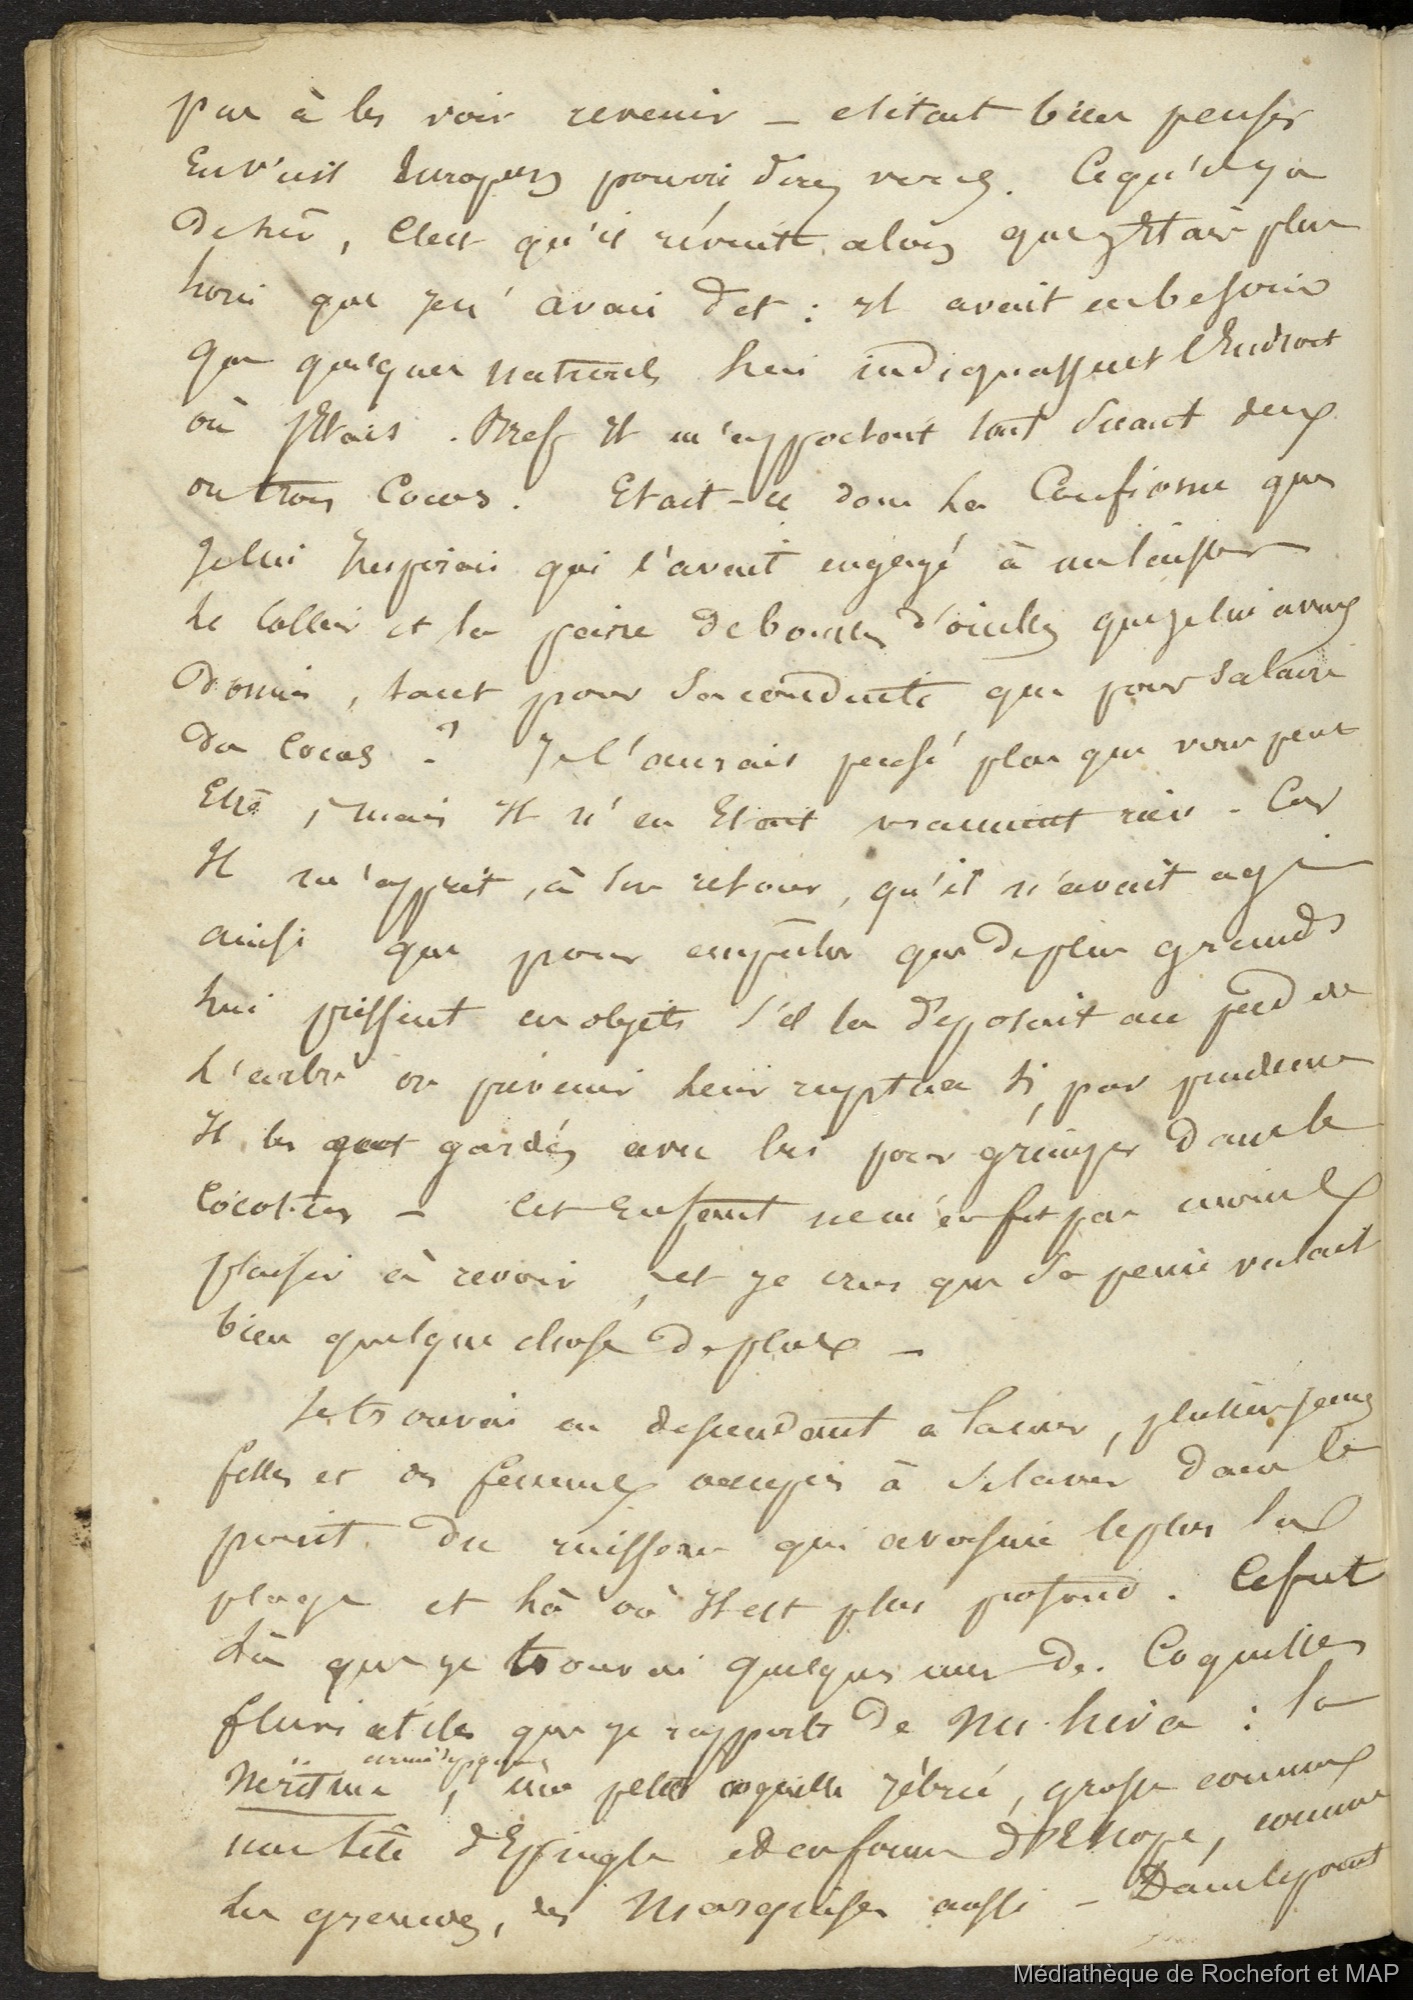 pas à les voir revenir _ c'était bien penser
Européen pouvoir Ce qu'il y a
de sûr, c'est qu'il revint, alors que j'étais plus
loin que je n'avais dit : il avait eu besoin
que quelques naturels lui indiquassent l'Endroit
où j'Etais . Bref Il m'apportait tout suant deux
ou trois Cocos . Etait-ce donc la Confiance que
je lui Inspirais qui l'avait engagé à me laisser
le Collier et la paire de boucles d'oreilles que je lui avais
donnés, tant pour sa conduite que pour salaire
du cocos ? Je l'aurais pensé plus que vous peut
Etre , mais Il n'en Etait vraiment rien . Car
Il m'apprit, à son retour, qu'il n'avait agi
ainsi que pour empêcher que de plus grands
lui prissent ces objets s'il les déposait au pied de
l'arbre ou prévenir leur rupture si, par prudence
Il les eut gardés avec lui pour grimper dans le
Cocotier _ Cet Enfant ne m'en fit pas moins
plaisir à revoir , et je crus que sa peine valait
bien quelque chose de plus _
Je trouvai en descendant à la mer, plusieurs jeunes
filles et des femmes occupées à se laver dans le
point du ruisseau qui avoisine le plus la
plage et là où Il est plus profond . Ce fut
là que je trouvai quelques unes des Coquilles
fluviatiles que je rapporte de Nu-hiva : la
Néritine , une petite coquille zébrée, grosse comme
une tête d'Epingle et en forme d'Ellipse, comme
les grenues, des Marquises aussi _ Dans le point
Médiathèque de Rochefort et MAP